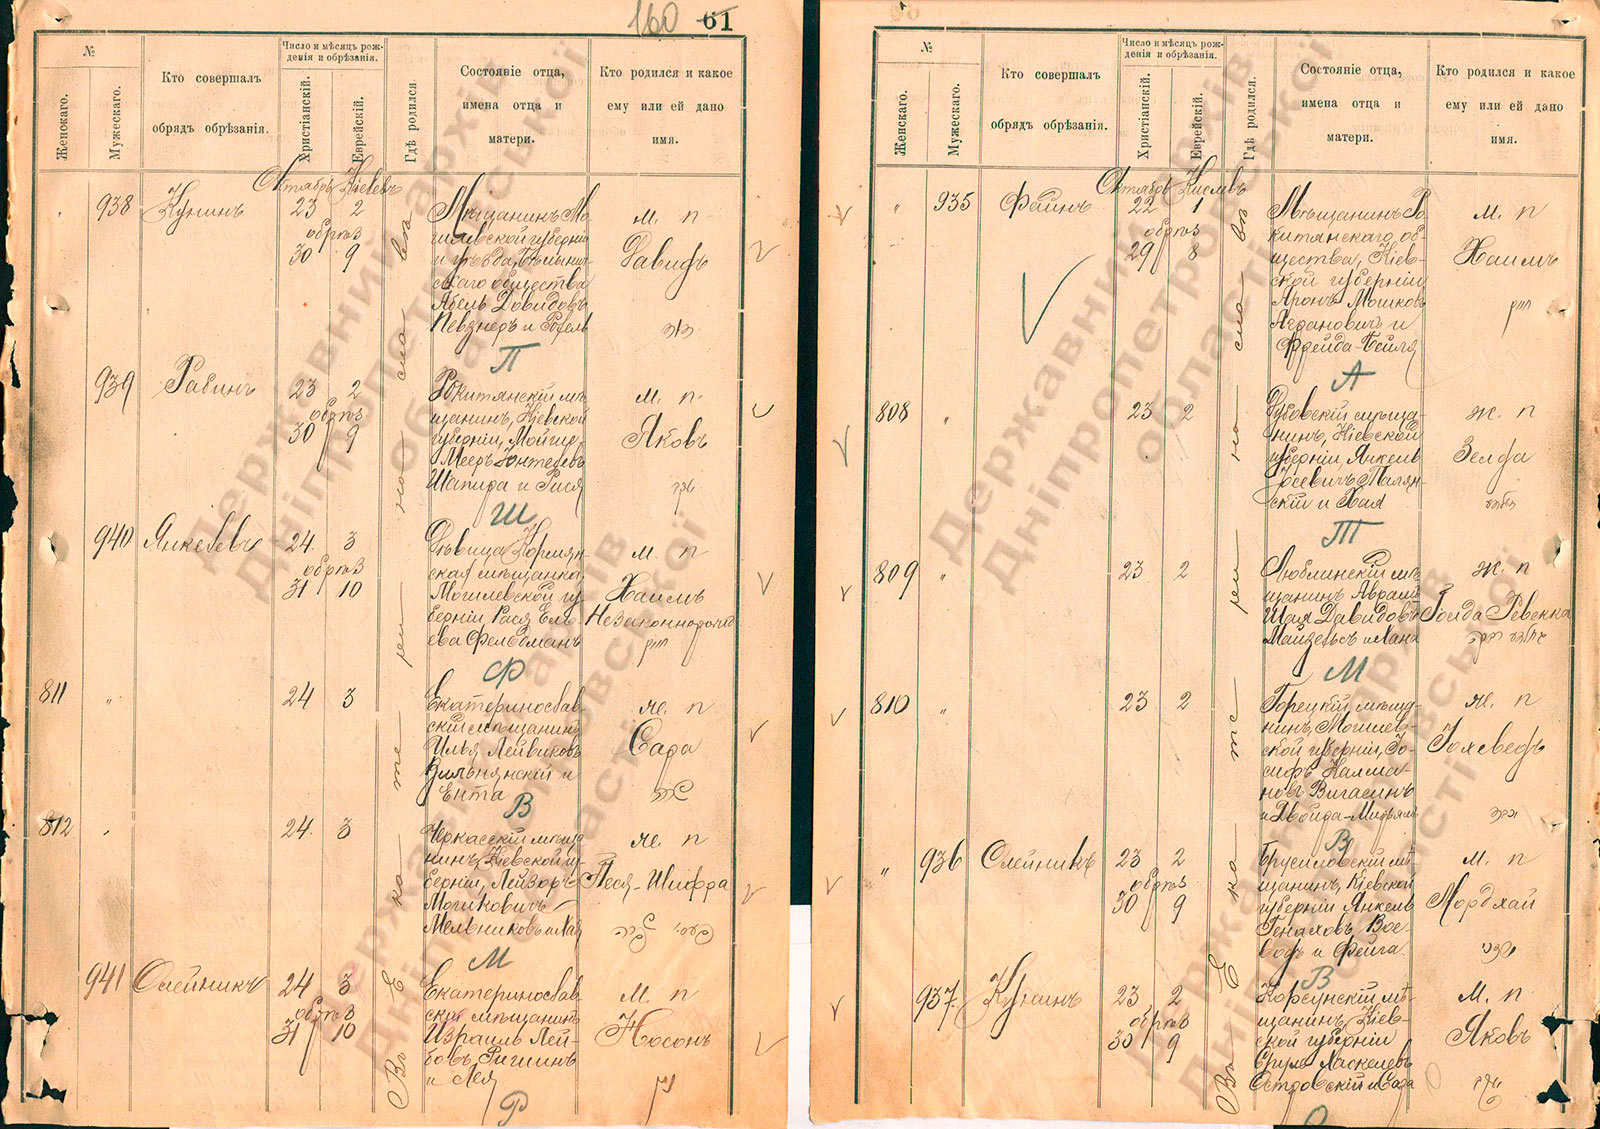 160 61
№
Женскаго.
Мужескаго.
Кто совершалъ
обрядъ обрѣзанія.
Число и мѣсяцъ рож-
денія и обрѣзанія.
Христіанскій.
Еврейскій.
Гдѣ родился
Состояніе отца,
имена отца и
матери.
Кто родился и какое
ему или ей дано
имя.
Октябрь Кисевъ
938 Кунинъ 23 2
обрѣз
30 9
Мѣщанинъ Мо
гилевской губерніи
и уѣзда,
скаго общества
Абель Давидовъ
Певзнеръ и
м. п
Давидъ
П
939 Рабинъ 23 2
обрѣз
30 9
Рокитянскій мѣ
щанинъ, Кіевской
губерніи,
Мееръ
Шапира и Рися
м. п.
Яковъ
Ш
940 Янкелевъ 24. 3
обрѣз
31 10
Дѣвица Кормян
ская мѣщанка,
Могилевской гу
берніи Рася Ель
ева Фельдманъ
м. п
Хаимъ
Незаконнорожед
Ф
811 " 24 3
Екатеринослав
скій мѣщанинъ
Илья Лейвиковъ
Вильнянскій и
Ента
ж. п
Сара
В
812 " 24. 3
Черкасскій мѣща
нинъ, Кіевской гу
берніи, Лейзоръ
Мошковичъ
Мельниковъ и Хая
ж. п
Песя-Шифра
М
941 Олейникъ 24 3
обрѣз
31 10
Екатеринослав
скій мѣщанинъ
Израиль Лей-
бовъ, Ригшинъ
и Лея
м. п
Носонъ
Р
Въ Екатеринославѣ
№
Женскаго.
Мужескаго.
Кто совершалъ
обрядъ обрѣзанія.
Число и мѣсяцъ рож-
денія и обрѣзанія.
Христіанскій.
Еврейскій.
Гдѣ родился.
Состояніе отца,
имена отца и
матери.
Кто родился и какое
ему или ей дано
имя.
Октябрь Кислевъ
" 935 Файнъ 22 1
обрѣз
29 8
Мѣщанинъ Ро
китянскаго об
щества, Кіев-
ской губерніи
Аронъ Мошковъ
Аграновичъ и
Фрейда-Бейля
м. п
Хаимъ
А
808 " 23 2
Дубовскій мѣща
нинъ, Кіевской
губерніи, Янкель
Іосевичъ Талян-
скій и Хая
ж. п
Зелда
Т
809 " 23 2
Люблинскій мѣ
щанинъ Авраам
Шая Давидовъ
Майзельсъ и Хана
ж. п
Голда Ревекка
М
810 " 23 2
Горецкій мѣща
нинъ, Могилев-
ской губерніи, Іо-
сифъ Калма-
новъ Вигасинъ
и Двойра-Мирьямъ
ж. п
Іохеведъ
В
" 936 Олейникъ 23 2
обрѣз
30 9
Брусиловскій мѣ
щанинъ, Кіевской
губерніи Янкель
Генаховъ Вое-
водъ и Фейга
м. п
Мордхай
В
937. Кунинъ 23 2
обрѣз
30 9
Корсунскій мѣ
щанинъ, Кіев-
ской губерніи
Сруль Хаскелевъ
Островскій и Сара
м. п.
Яковъ
О
Въ Екатеринославѣ
Державний архів
Дніпропетровської
області